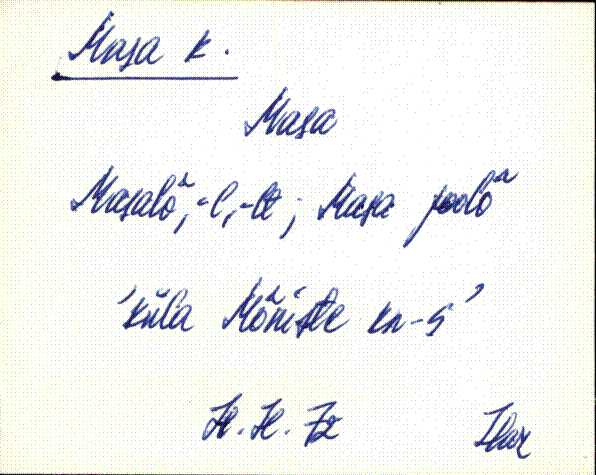 Masa k.
Masa
Masalõ, -l, -lt ; Masa poolõ
'küla Mõniste kn-s'
H. H. 72 Har